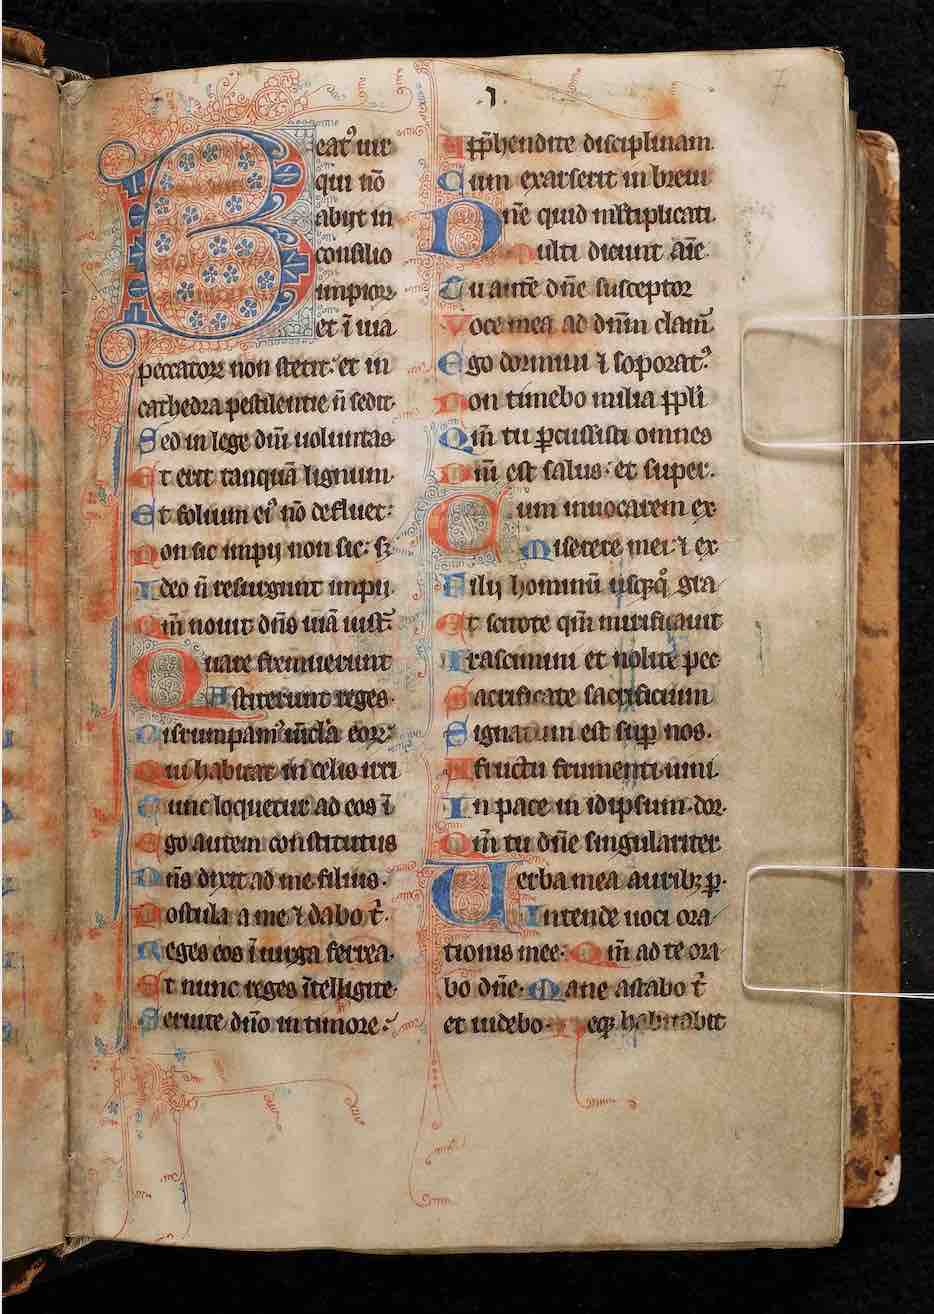 .1.
7
Beatꝰ uir
qui nō
abijt in
consilio
impioꝝ
et ī uia
peccatoꝝ non stetit: et in
cathedra pestilentie n̄ sedit·
Sed in lege dn̄i uoluntas
Et erit tanquā lignum
Et folium eiꝰ nō defluet:
Non sic impij non sic: sꝫ
Ideo n̄ resurgunt impij
Qm̄ nouit dn̄s uiā iust̄
Quare fremuerunt
Astiterunt reges·
Disrumpamꝰ uīcl'a eoꝝ:
Qui habitat in celis irri
Tunc loquetur ad eos ī
Ego autem constitutus
Dn̄s dixit ad me filius·
Postula a me ⁊ dabo t̄·
Reges eos ī uirga ferrea·
Et nunc reges ītelligite·
Seruite dn̄o in timore:
App̄hendite disciplinam
Cum exarserit in breui
Dn̄e quid ml̄tiplicati
Multi dicunt aīe
Tu autē dn̄e susceptor
Voce mea ad dn̄m clam̄
Ego dormiui ⁊ soporatꝰ
Non timebo milia ppl̄i
Qm̄ tu ꝑcussisti omnes
Dn̄i est salus: et super·
Cum inuocarem ex
Miserere mei ⁊ ex
Filij hominū usqꝫq̄ gra
Et scitote qm̄ mirificauit
Irascimini et nolite pec
Sacrificate sacrificium
Signatum est sup nos·
A fructu frumenti uini
In pace in idipsum dor·
Qm̄ tu dn̄e singulariter
Verba mea auribꝫ ꝑ·
Intende uoci ora
tionis mee· Qm̄ ad te ora
bo dn̄e· Mane astabo t̄
et uidebo· Neqꝫ habitabit